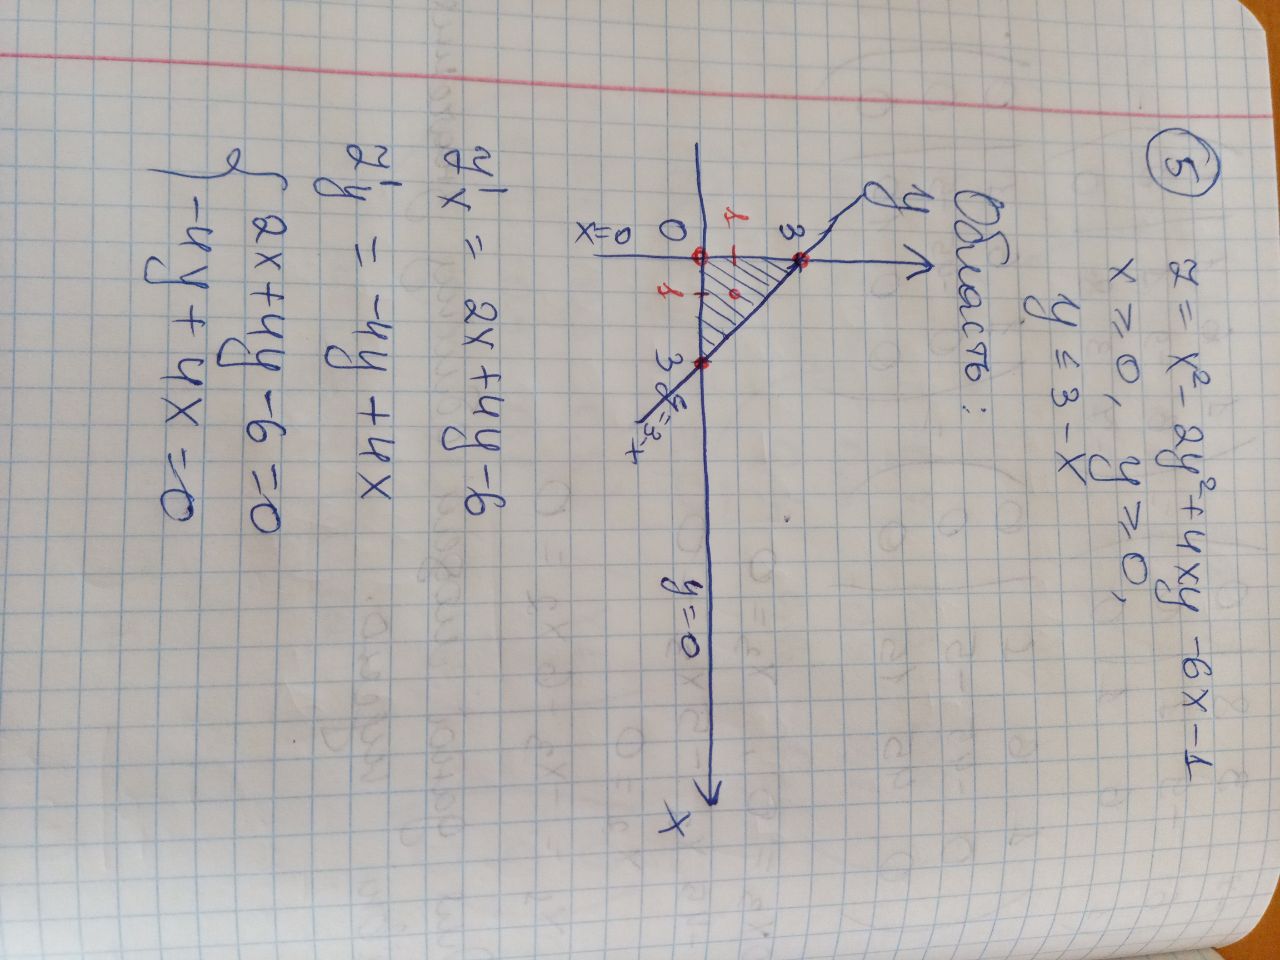 5 z = x² - 2y² + 4xy - 6x - 1
x ⩾ 0, y ⩾ 0,
y ≤ 3 - x
Область:
y
3
1
0 1 3 y=3-x y=0 x
x=0
z'x = 2x + 4y - 6
z'y = -4y + 4x
{ 2x + 4y - 6 = 0
-4y + 4x = 0